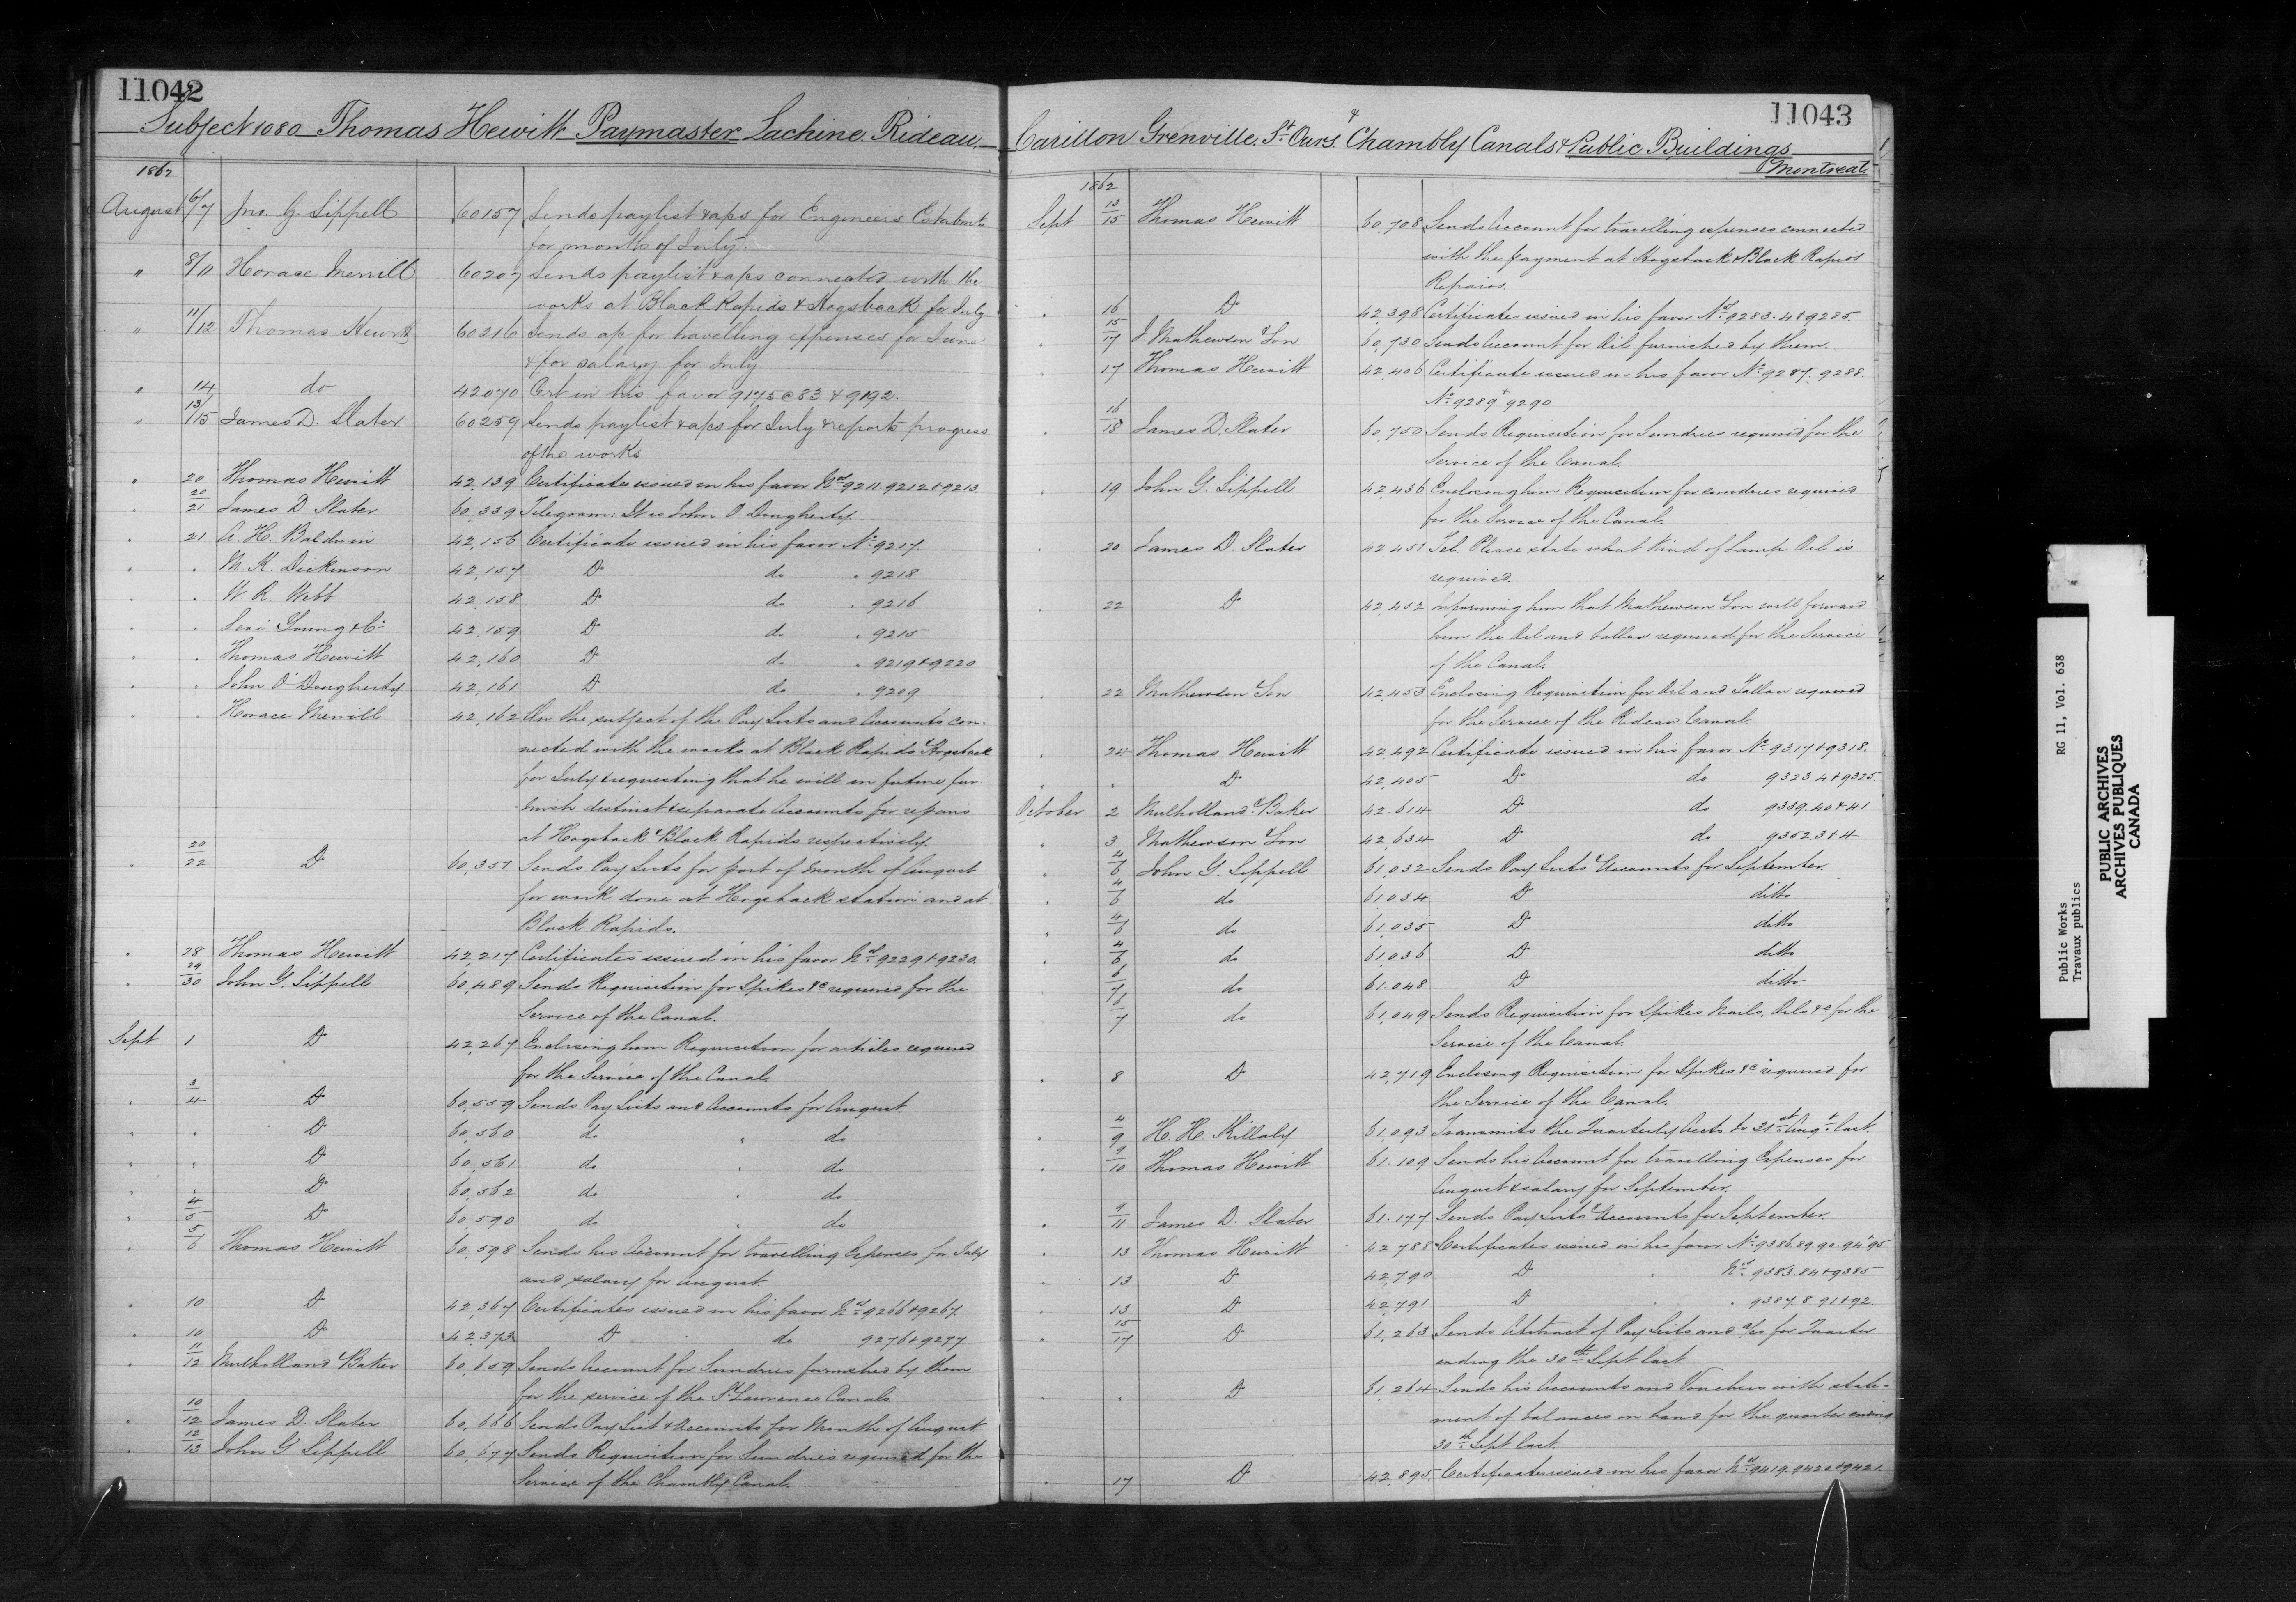 11042
Subject 1080 Thomas Hewitt Paymaster Lachine. Rideau.
1862
August 6/7 Jno. G. Sippell 60157 Sends paylist & aps for Engineers
for month of July.
" 8/11 Horace Merrill 60207 Sends paylist & aps connected with the
works at Black Rapids & Hogsback for July
" 11/12 Thomas Hewitt 60216 Sends ap for travelling expenses for June
& for salary for July.
" 14 do 42070 Cert in his favor 9175 @ 83 & 9192.
" 13/15 James D. Slater 60259 Sends paylist & aps for July & reports progress
of the works
" 20 Thomas Hewitt 42,139 Certificates issued in his favor Nos 9211. 9212 & 9213.
" 20/21 James D. Slater 60,339 Telegram: It is John O. Dougherty.
" 21 A. H. Baldwin 42,156 Certificate issued in his favor No 9217.
" " M. K. Dickinson 42,157 Do do " 9218
" " W. R. Webb 42,158 Do do " 9216
" " Levi Young & Co 42,159 Do do " 9215
" " Thomas Hewitt 42,160 Do do " 9219 & 9220
" " John O'Dougherty 42,161 Do do " 9209
" " Horace Merrill 42,162 On the subject of the Pay Lists and Accounts con-
nected with the works at Black Rapids & Hogsback
for July & requesting that he will in future fur-
nish distinct & separate Accounts for repairs
at Hogsback & Black Rapids respectively.
" 20/22 Do 60,351 Sends Pay Lists for part of month of August
for work done at Hogsback station and at
Black Rapids.
" 28 Thomas Hewitt 42,217 Certificates issued in his favor Nos 9229 & 9230.
" 29/30 John G. Sippell 60,489 Sends Requisition for Spikes &c required for the
Service of the Canal.
Sept 1 Do 42,267 Enclosing him Requisition for articles required
for the Service of the Canal.
" 3/4 Do 60,559 Sends Pay Lists and Accounts for August.
" " Do 60,560 do " do
" " Do 60,561 do " do
" " Do 60,562 do " do
" 4/5 Do 60,590 do " do
" 5/6 Thomas Hewitt 60,598 Sends his Account for travelling Expenses for July
and salary for August.
" 10 Do 42,367 Certificates issued in his favor Nos 9266 & 9267.
" 10 Do 42,373 Do do 9276 & 9277
" 11/12 Mulholland & Baker 60,659 Sends Account for Sundries furnished by them
for the service of the St Lawrence Canals.
" 10/12 James D. Slater 60,666 Sends Pay List & Accounts for Month of August
" 12/13 John G. Sippell 60,677 Sends Requisition for Sundries required for the
Service of the Chambly Canal.
11043
Carillon Grenville. St Ours. & Chambly Canals & Public Buildings
Montreal.
1862
Sept 13/15 Thomas Hewitt 60,708 Sends Account for travelling expenses connected
with the payment at Hogsback & Black Rapids
Repairs.
" 16 Do 42,398 Certificates issued in his favor Nos 9283. 4 & 9285.
" 15/17 J Mathewson & Son 60,730 Sends Account for Oil furnished by them.
" 17 Thomas Hewitt 42,406 Certificate issued in his favor No 9287. 9288
No 9289 & 9290
" 16/18 James D. Slater 60,750 Sends Requisition for Sundries required for the
Service of the Canal.
" 19 John G. Sippell 42,436 Enclosing him Requisition for sundries required
for the Service of the Canal.
" 20 James D. Slater 42,451 Tel. Please state what kind of Lamp Oil is
required.
" 22 Do 42,452 Informing him that Mathewson & Son will forward
him the Oil and tallow required for the Service
of the Canal.
" 22 Mathewson & Son 42,453 Enclosing Requisition for Oil and Tallow required
for the Service of the Rideau Canal.
" 24 Thomas Hewitt 42,492 Certificate issued in his favor No 9317 & 9318.
" " Do 42,405 Do do 9323. 4 & 9325.
October 2 Mulholland & Baker 42,614 Do do 9339. 40 & 41
" 3 Mathewson & Son 42,634 Do do 9352. 3 & 4
" 4/6 John G. Sippell 61,032 Sends Pay Lists & Accounts for September.
" 4/6 do 61,034 Do ditto
" 4/6 do 61,035 Do ditto
" 4/6 do 61,036 Do ditto
" 6/7 do 61,048 Do ditto
" 6/7 do 61,049 Sends Requisition for Spikes Nails, Oils &c for the
Service of the Canal.
" 8 Do 42,719 Enclosing Requisition for Spikes &c required for
the Service of the Canal.
" 4/9 H. H. Killaly 61,093 Transmits the Quarterly Accts to 31st Augt last.
" 9/10 Thomas Hewitt 61,109 Sends his Account for travelling Expenses for
August & salary for September.
" 9/11 James D. Slater 61,177 Sends Pay Lists & Accounts for September.
" 13 Thomas Hewitt 42,788 Certificates issued in his favor No 9386. 89. 90. 94 & 95.
" 13 Do 42,790 Do " Nos 9383. 84 & 9385
" 13 Do 42,791 Do " " 9387. 8. 91 & 92.
" 15/17 Do 61,263 Sends Abstract of Pay Lists and a/cs for Quarter
ending the 30th Sept last
" " Do 61,264 Sends his Accounts and Vouchers with state-
ment of balances on hand for the quarter ending
30th Sept last.
17 Do 42,895 Certificates issued in his favor Nos 9419. 9420 & 9421.
Public Works RG 11, Vol. 638
Travaux publics
PUBLIC ARCHIVES
ARCHIVES PUBLIQUES
CANADA